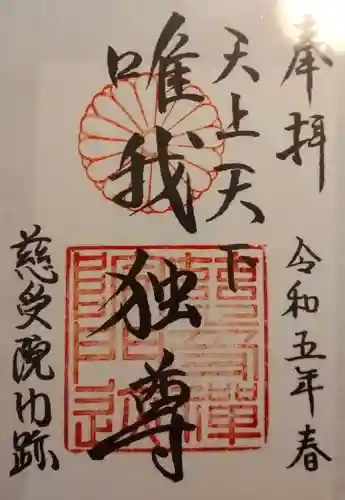 奉拝
令和五年春
天上天下
唯我独尊
慈受院门跡